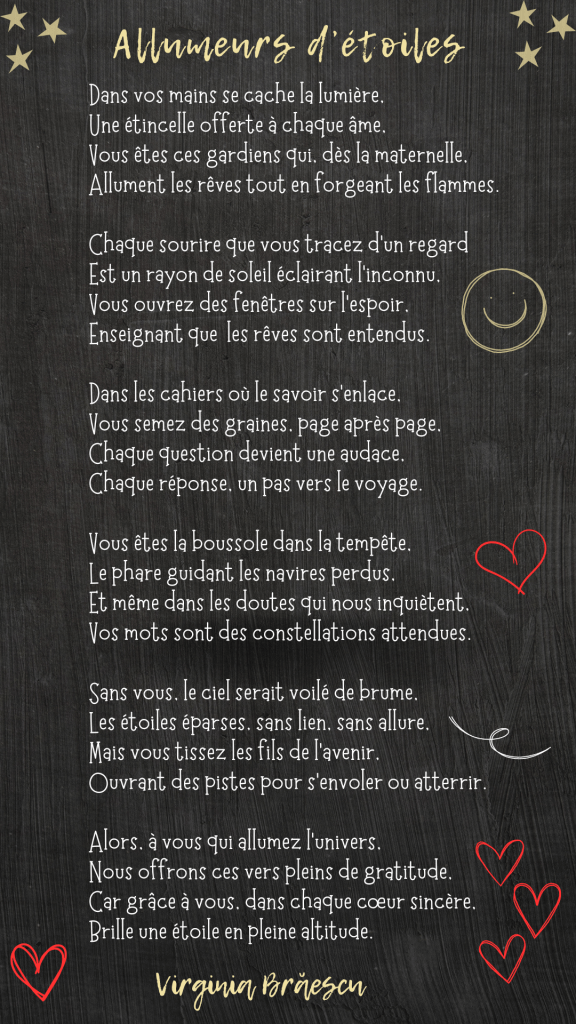 Allumeurs d'étoiles
Dans vos mains se cache la lumière,
Une étincelle offerte à chaque âme,
Vous êtes ces gardiens qui, dès la maternelle,
Allument les rêves tout en forgeant les flammes.
Chaque sourire que vous tracez d'un regard
Est un rayon de soleil éclairant l'inconnu,
Vous ouvrez des fenêtres sur l'espoir,
Enseignant que les rêves sont entendus.
Dans les cahiers où le savoir s'enlace,
Vous semez des graines, page après page,
Chaque question devient une audace,
Chaque réponse, un pas vers le voyage.
Vous êtes la boussole dans la tempête,
Le phare guidant les navires perdus,
Et même dans les doutes qui nous inquiètent,
Vos mots sont des constellations attendues.
Sans vous, le ciel serait voilé de brume,
Les étoiles éparses, sans lien, sans allure,
Mais vous tissez les fils de l'avenir,
Ouvrant des pistes pour s'envoler ou atterrir.
Alors, à vous qui allumez l'univers,
Nous offrons ces vers pleins de gratitude,
Car grâce à vous, dans chaque cœur sincère,
Brille une étoile en pleine altitude.
Virginia Brăescu